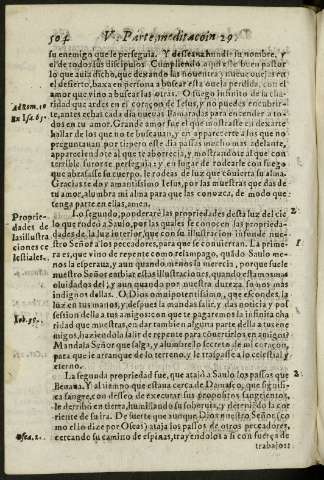 504 V. Parte, meditacion 29.
su enemigo que le perseguia. Y desseaua hundir su nombre, y
el de todos sus discipulos. Cumpliendo aqui este buen pastor
lo que auia dicho, que dexando las nouenta y nueue ouejas en
el desierto, baxa en persona a buscar esta oueja perdida, con el
amor que vino a buscar las otras. O fuego infinito de la cha-
ridad que ardes en el coraçon de Iesus, y no puedes encubrir-
te, antes echas cada dia nueuas llamaradas para encender a to-
dos en tu amor. Grande amor fue el que mostraste en dexarte
hallar de los que no te buscauan, y en apparecerte a los que no
preguntauan por ti
pero este dia passas mucho mas adelante,
appareciendote al que te aborrecia, y mostrandote al que con
terrible furor te perseguia: y en lugar de rodearle con fuego
que abrasasse su cuerpo, le rodeas de luz que conuierta su alma.
Gracias te doy amantissimo Iesus, por las muestras que das de
tu amor, alumbra mi alma para que las conozca, de modo que
tenga parte en ellas, amen.
Ad Rom. 10
Ex Isa. 65.
Lo segundo, ponderarè las propriedades desta luz del cie-
lo que rodeò a Saulo, por las quales se conocen las proprieda-
des de la luz interior, que con su illustracion infunde nue-
stro Señor a los peccadores, para que se conuiertan. La prime-
ra es, que vino de repente como relampago, quãdo Saulo me-
nos la esperaua, y aun quando menos la merecia, porque suele
nuestro Señor embiar estas illustraciones, quando estamos mas
oluidados del; y aun quando por nuestra dureza somos mas
indignos dellas. O Dios omnipotentissimo, que escondes la
luz en tus manos, y despues la mandas salir, y das noticia y pos
session della a tus amigos: con que te pagaremos la infinita cha
ridad que muestras, en dar tambien alguna parte della a tus ene
migos, haziendola salir de repente para conuertirlos en amigos?
Manda la Señor que salga, y alumbre lo secreto de mi coraçon,
para que le arranque de lo terreno, y le traspasse a lo celestial, y
eterno.
Proprie-
dades de
las illustra
ciones ce
lestiales.
2.
1
Iob. 36.
La segunda propriedad fue, que atajò a Saulo los passos que
lleuaua. Y al tiempo que estaua cerca de Damasco, que signifi-
ca sangre, con desseo de executar sus propositos sangrientos,
le derribò en tierra, humillando su soberuia, y deteniendo la cor
riente de su ira. De suerte que aunque Dios nuestro Señor (co
mo el lo dize por Oseas) ataja los passos de otros peccadores,
cercando su camino de espinas, trayendolos a si con fuerça de
trabajos:
2.
Osea. 2.